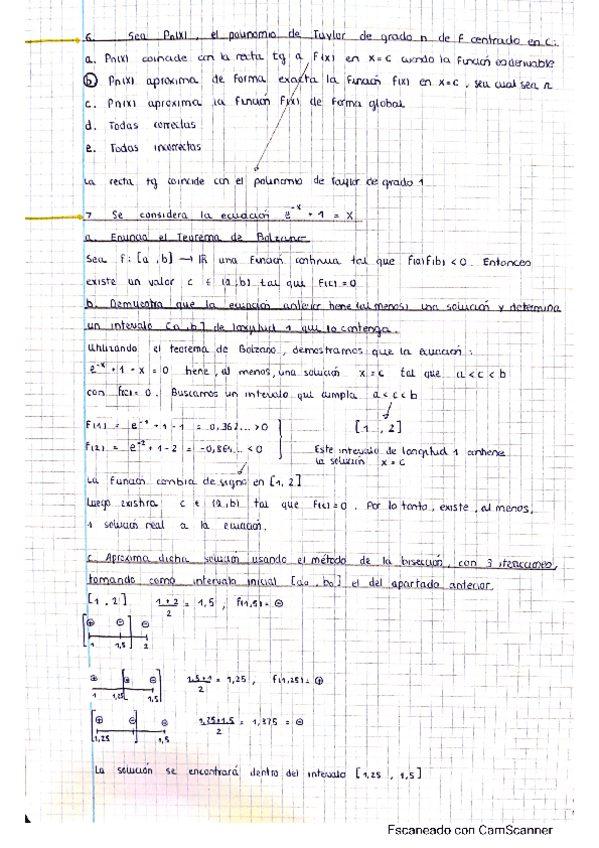 6. Sea Pn(x), el polinomio de Taylor de grado n de f centrado en c:
a. Pn(x) coincide con la recta tg a f(x) en x=c cuando la función es derivable
b. Pn(x) aproxima de forma exacta la función f(x) en x=c, sea cual sea n
c. Pn(x) aproxima la función f(x) de forma global
d. Todas correctas
e. Todas incorrectas
La recta tg coincide con el polinomio de Taylor de grado 1
7 Se considera la ecuación e^-x + 1 = x
a. Enuncia el Teorema de Bolzano
Sea f: [a,b] → IR una función continua tal que f(a)f(b) < 0. Entonces
existe un valor c ∈ (a,b) tal que f(c) = 0
b. Demuestra que la ecuación anterior tiene (al menos) una solución y determina
un intervalo [a,b] de longitud 1 que lo contenga.
Utilizando el teorema de Bolzano, demostramos que la ecuación:
e^-x + 1 - x = 0 tiene, al menos, una solución x=c tal que a<c<b
con f(c) = 0. Buscamos un intervalo que cumpla a<c<b
f(1) = e^-1 + 1 - 1 = 0,367... >0 [1, 2]
f(2) = e^-2 + 1 - 2 = -0,864... <0 Este intervalo de longitud 1 contiene
la solución x=c
La función cambia de signo en [1, 2]
Luego existirá c ∈ (a,b) tal que f(c)=0. Por lo tanto, existe, al menos,
1 solución real a la ecuación.
c. Aproxima dicha solución usando el método de la bisección, con 3 iteraciones,
tomando como intervalo inicial [a0, b0] el del apartado anterior.
[1, 2] 1+2/2 = 1,5, f(1,5) = ⊖
⊕ ⊖ ⊖
1 1,5 2
⊕ ⊕ ⊖ 1,5+1/2 = 1,25, f(1,25) = ⊕
1 1,25 1,5
⊕ ⊖ ⊖ 1,25+1,5/2 = 1,375 = ⊖
1,25 1,5
La solución se encontrará dentro del intervalo [1,25, 1,5]
Escaneado con CamScanner